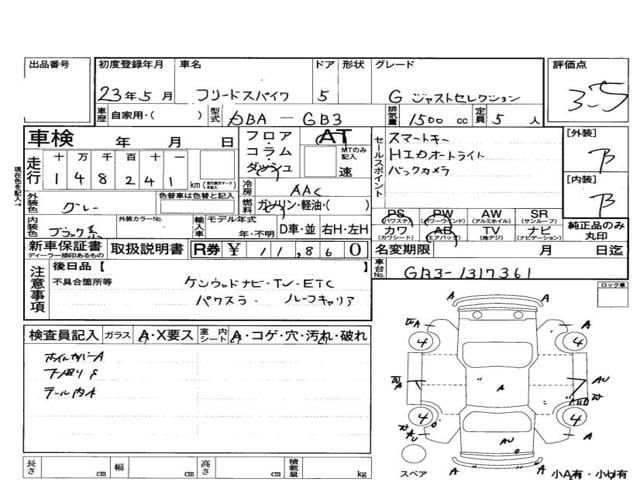 出品番号 初度登録年月 車名 ドア 形状 グレード 評価点
23年5月 フリードスパイク 5 G ジャストセレクション 3.5
車歴 自家用・( ) 型式 DBA-GB3 排気量 1500cc 定員 5人
車検 年 月 日 フロア・コラム・ダッシュ AT MTのみ記入 速 セールスポイント スマートキー [外装] B
走行 十万千百十一 148241 km HIDオートライト
現在色を記入→ 冷房 AAC バックカメラ [内装] B
外装色 グレー 色替車は色替と記入 燃料 ガソリン・軽油・( )
PS (パワステ) PW (パワーウインド) AW (アルミホイル) SR (サンルーフ)
内装色 ブラック系 外装カラーNo. 輸入車 モデル年式 年・不明 D車・並 右H・左H カワ (カワシート) AB (エアバッグ) TV (地デジ) ナビ (ナビゲーション) 純正品のみ丸印
新車保証書 ディーラー捺印あるもの 取扱説明書 R券 ¥ 11,860 名変期限 月 日迄
注意事項 後日品【 】 車台No. GB3-1317361
不具合箇所等 ケンウッドナビ・TV・ETC
ルーフキャリア
ロック車
検査員記入 ガラス A・X要ス 室内シート A・コゲ・穴・汚れ・破れ
ホイルカバーA
テール内水
長さ cm 幅 cm 高さ cm 積載量 kg
A
A 4 4 A
A A AU
4 4
AU
スペア A A 小A有・小U有